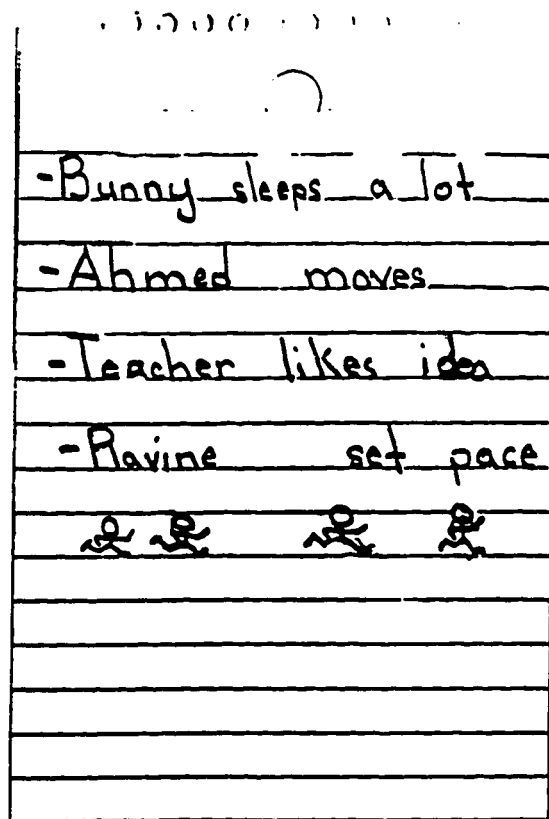 -Bunny sleeps a lot
-Ahmed moves
-Teacher likes idea
-Ravine set pace